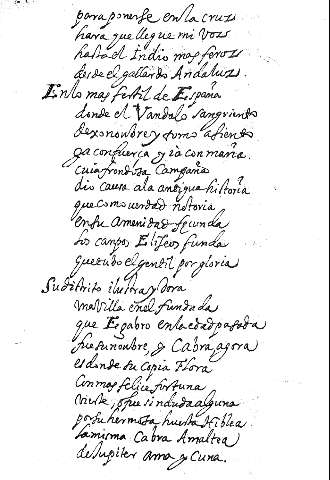 para ponerse en la cruz
hara que llegue mi voz
hasta el Indio mas feroz
desde el gallardo Andaluz.
En lo mas fertil de España
donde el Vandalo sangriento
dexo nombre y tomo asiento
ya con fuerça y ia con maña.
cuia frondosa Campaña
dio causa a la antigua historia
que como verdad notoria
en su Amenidad fecunda
los campos Eliseos funda
que tubo el gentil por gloria
Su distrito ilustra y dora
una Villa en el fundada
que Egabro en la edad pasada
fue su nombre, y Cabra agora
es donde su copia Flora
con mas felice fortuna
vierte, q fue sin duda alguna
por su hermosa huerta Hiblea
la misma Cabra Amaltea
de Jupiter Ama y Cuna.